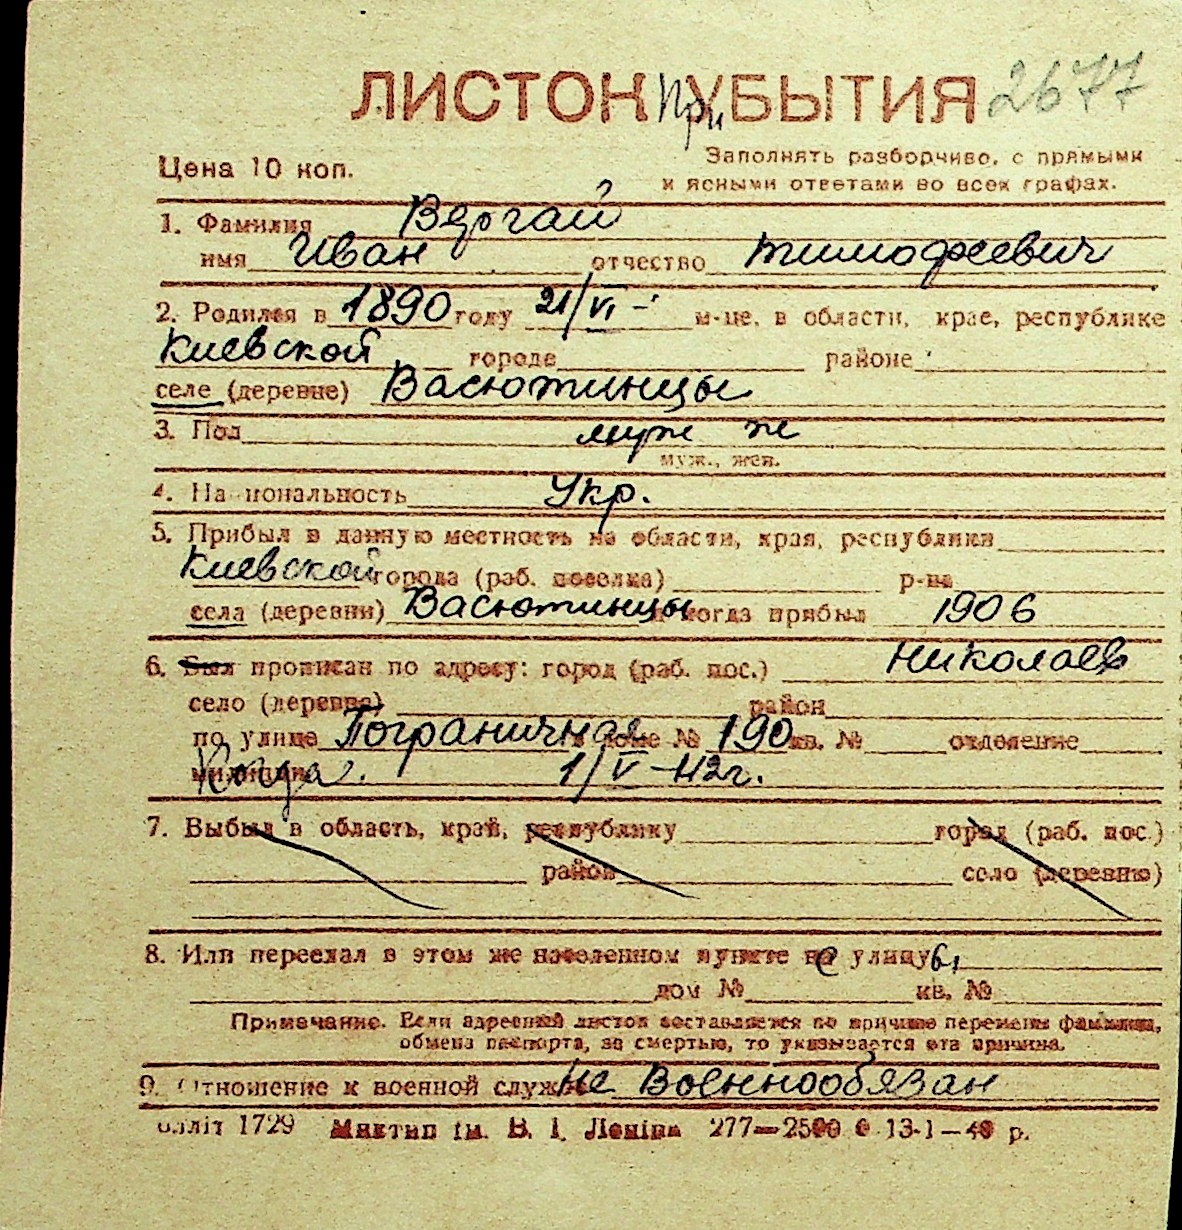 ЛИСТОК при УБЫТИЯ 2677
Цена 10 коп.
Заполнять разборчиво, с прямыми
и ясными ответами во всех графах.
1. Фамилия Вергай
имя Иван отчество Тимофеевич
2. Родился в 1890 году 21/VI - м-це, в области, крае, республике
Киевской городе районе
селе (деревне) Васютинцы
3. Пол муж
муж., жен.
4. Национальность Укр.
5. Прибыл в данную местность из области, края, республики
Киевской города (раб. поселка) р-на
села (деревни) Васютинцы и когда прибыл 1906
6. Был прописан по адресу: город (раб. пос.) Николаев
село (деревня) район
по улице Пограничная в доме № 190 кв. № отделение
милиции Когда. 1/V-42г.
7. Выбыл в область, край, республику город (раб. пос.)
район село (деревню)
8. Или переехал в этом же населенном пункте с улицы
дом № кв. №
Примечание. Если адресный листок составляется по причине перемены фамилии,
обмена паспорта, за смертью, то указывается эта причина.
9. Отношение к военной службе Не Военнообязан
облліт 1729 Миктип ім. В. І. Леніна 277—2500 13-1-40 р.